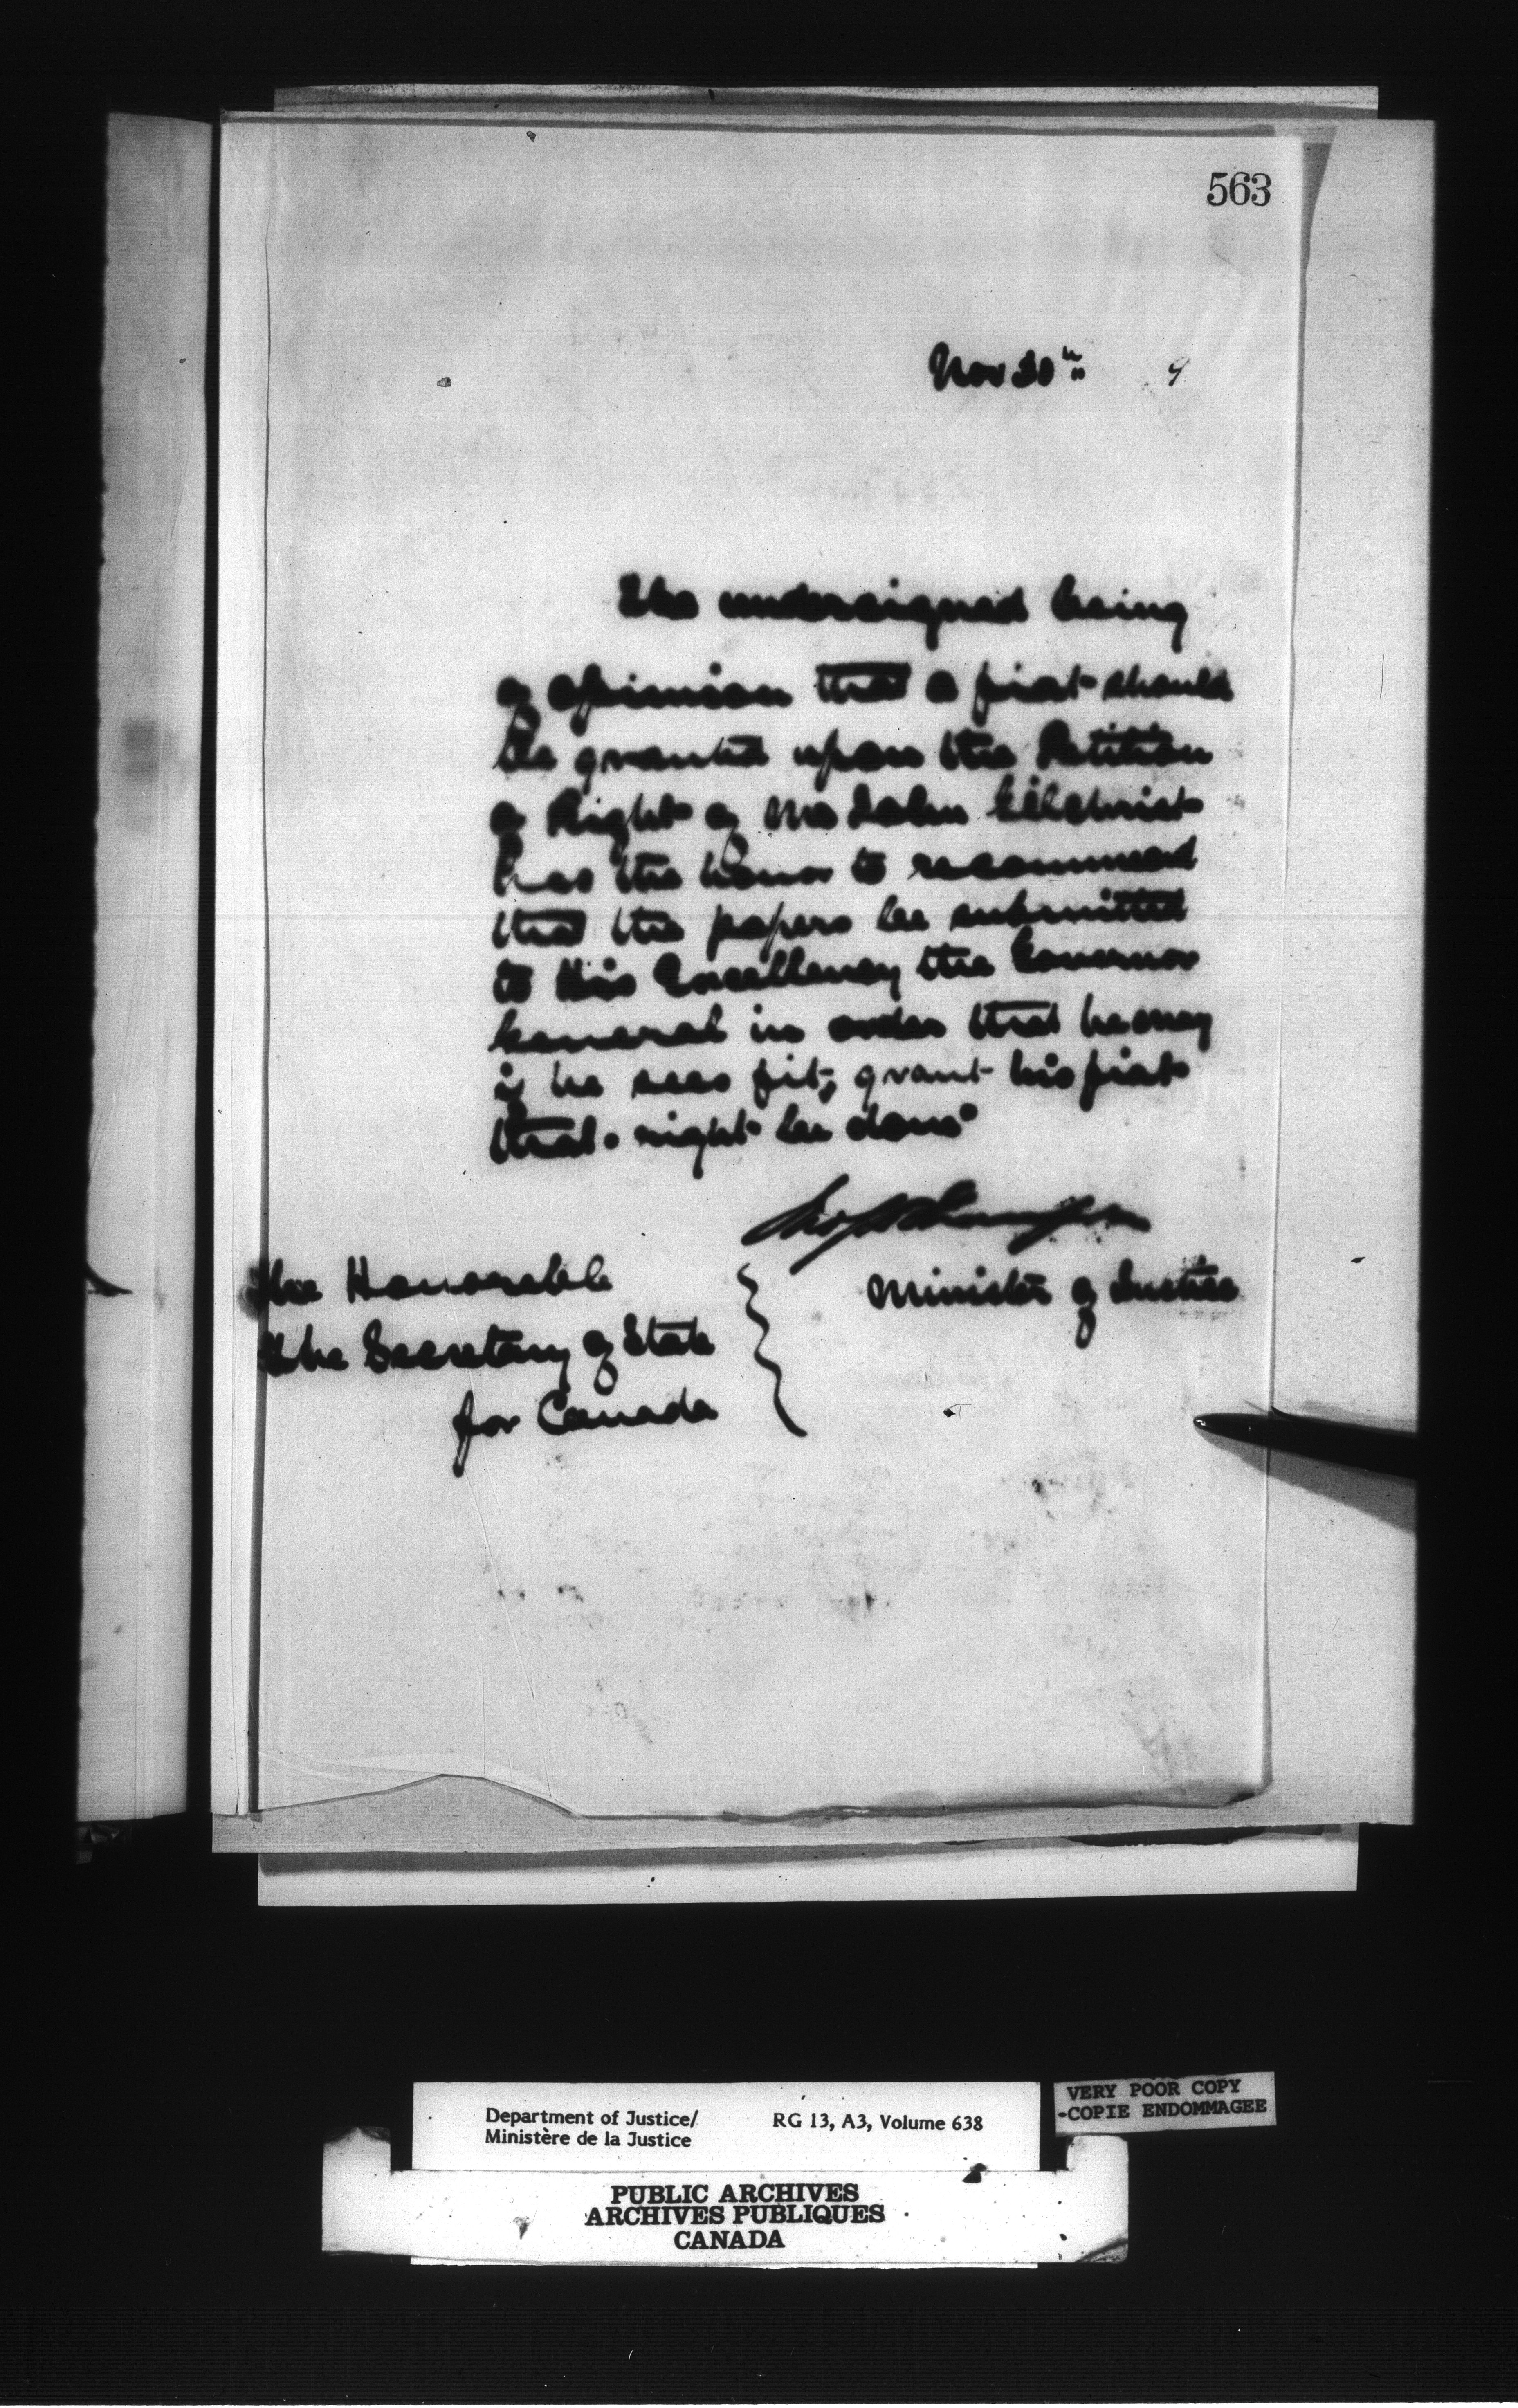 563
Nov 30th 9
The undersigned being
of opinion that a fiat should
be granted upon the Petition
of Right of Mr John Gilchrist
has the honor to recommend
that the papers be submitted
to His Excellency the Governor
General in order that he may
if he sees fit, grant his fiat
that "right be done"
Jno S D Thompson
Minister of Justice
The Honorable
The Secretary of State
for Canada
Department of Justice/ RG 13, A3, Volume 638
Ministère de la Justice
VERY POOR COPY
-COPIE ENDOMMAGEE
PUBLIC ARCHIVES
ARCHIVES PUBLIQUES
CANADA